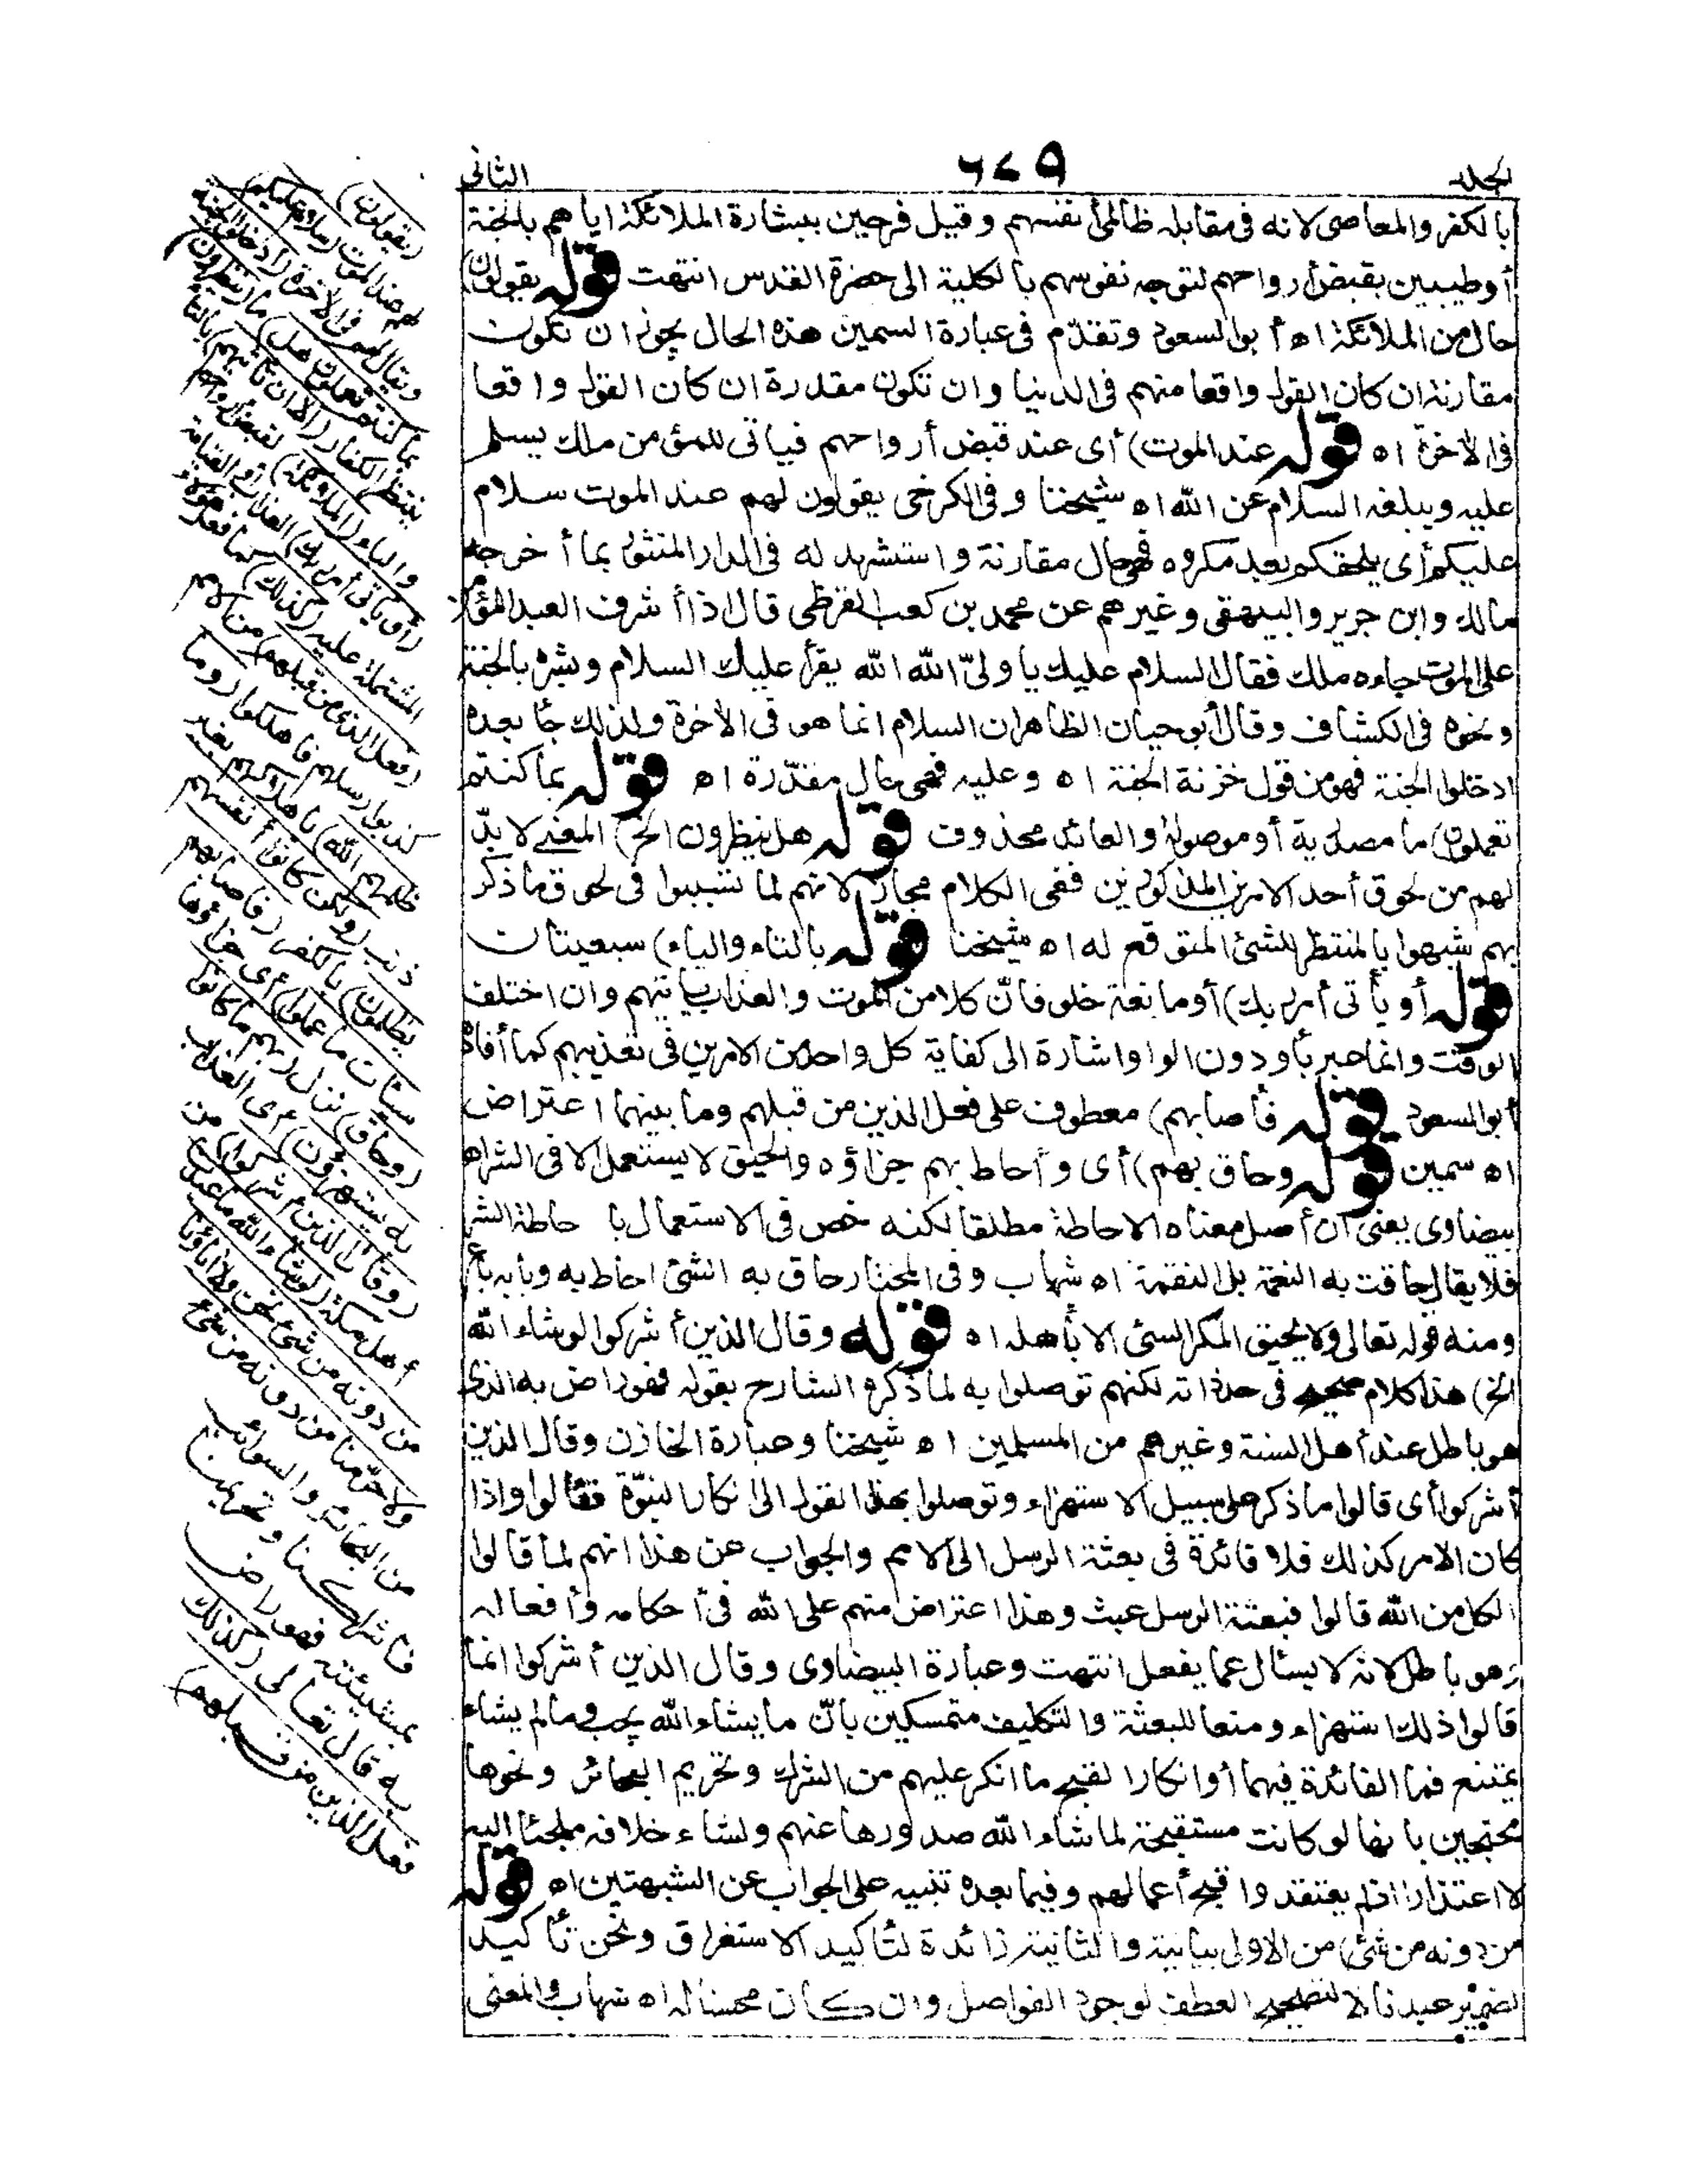 المجلد ٦٧٩ الثانى
بالكفر والمعاصى لانه فى مقابلة ظالمى أنفسهم وقيل فرحين ببشارة الملائكة اياهم بالجنة
أو طيبين بقبض أرواحهم لتوجه نفوسهم بالكلية الى حضرة القدس انتهت قوله يقولون)
حال من الملائكة اه أبو السعود وتقدّم فى عبارة السمين هذه الحال يجوز ان تكون
مقارنة ان كان القول واقعا منهم فى الدنيا وان تكون مقدرة ان كان القول واقعا
فى الآخرة اه قوله عند الموت) أى عند قبض أرواحهم فيأتى للمؤمن ملك يسلم
عليه ويبلغه السلام عن الله اه شيخنا وفى الكرخى يقولون لهم عند الموت سلام
عليكم أى يلحقكم بعد مكروه فهى حال مقارنة واستشهد له فى الدار المنثور بما أخرجه
مالك وابن جرير والبيهقى وغيرهم عن محمد بن كعب القرظى قال اذا أشرف العبد المؤمن
على الموت جاءه ملك فقال السلام عليك يا ولىّ الله الله يقرأ عليك السلام وبشره بالجنة
ونحوه فى الكشاف وقال أبو حيان الظاهر ان السلام انما هو فى الآخرة ولذلك جاء بعده
ادخلوا الجنة فهو من قول خزنة الجنة اه وعليه فهى حال مقدّرة اه قوله بما كنتم
تعملون) ما مصدرية أو موصولة والعائد محذوف قوله هل ينظرون الخ) المعنى لا بدّ
لهم من لحوق أحد الامرين المذكورين ففى الكلام مجاز لانهم لما تسببوا فى لحوق ما ذكر
بهم شبهوا بالمنتظر للشئ المتوقع له اه شيخنا قوله بالتاء والياء) سبعيتان
قوله أو يأتى أمر ربك) أو مانعة خلو فانّ كلا من الموت والعذاب يأتيهم وان اختلف
الوقت وانما عبر بأو دون الواو اشارة الى كفاية كل واحد من الامرين فى تعذيبهم كما أفاده
أبو السعود قوله فأصابهم) معطوف على فعل الذين من قبلهم وما بينهما اعتراض
اه سمين قوله وحاق بهم) أى وأحاط بهم جزاؤه والحيق لا يستعمل الا فى الشر اه
بيضاوى يعنى ان أصل معناه الاحاطة مطلقا لكنه خص فى الاستعمال باحاطة الشر
فلا يقال حاقت به النعمة بل النقمة اه شهاب وفى المختار حاق به الشئ احاط به وبابه باع
ومنه قوله تعالى ولا يحيق المكر السئ الا بأهله اه قوله وقال الذين أشركوا لو شاء الله
الخ) هذا كلام صحيح فى حد ذاته لكنهم توصلوا به لما ذكره الشارح بقوله فهو راض به الذى
هو باطل عند أهل السنة وغيرهم من المسلمين اه شيخنا وعبارة الخازن وقال الذين
أشركوا أى قالوا ما ذكر على سبيل الاستهزاء وتوصلوا بهذا القول الى انكار النبوّة فقالوا واذا
كان الامر كذلك فلا فائدة فى بعثة الرسل الى الامم والجواب عن هذا انهم لما قالوا
الكل من الله قالوا فبعثة الرسل عبث وهذا اعتراض منهم على الله فى أحكامه وأفعاله
وهو باطل لانه لا يسئال عما يفعل انتهت وعبارة البيضاوى وقال الذين أشركوا انما
قالوا ذلك استهزاء ومنعا للبعثة والتكليف متمسكين بانّ ما يشاء الله يجب وما لم يشاء
يمتنع فما الفائدة فيهما أو انكارا لقبح ما انكر عليهم من الشرك وتحريم البحائر ونحوها
محتجين بانها لو كانت مستقبحة لما شاء الله صدورها عنهم ولشاء خلافه ملجئا اليه
لا اعتذارا اذ لم يعتقدوا قبح أعمالهم وفيما بعده تنبيه على الجواب عن الشبهتين اه قوله
من دونه من شئ) من الاولى بيانية والثانية زائدة لتأكيد الاستغراق ونحن تأكيد
لضمير عبدنا لا لتصحيح العطف لوجود الفواصل وان كان محسنا له اه شهاب والمعنى
(يقولون)
لهم عند الموت (سلام عليكم)
ويقال لهم فى الآخرة (ادخلوا الجنة
بما كنتم تعملون هل) ما (ينظرون)
ينتظر الكفار (الا ان تأتيهم) بالتاء
والياء (الملائكة) لقبض أرواحهم
(أو يأتى أمر ربك) العذاب أو القيامة
المشتملة عليه (كذلك) كما فعل هؤلاء
(فعل الذين من قبلهم) من الامم
كذبوا رسلهم فاهلكوا (وما
ظلمهم الله) باهلاكهم بغير
ذنب (ولكن كانوا أنفسهم
يظلمون) بالكفر (فأصابهم
سيئات ما عملوا) أى جزاؤها
(وحاق) نزل (بهم ما كانوا
به يستهزؤن) أى العذاب
(وقال الذين أشركوا) من
أهل مكة (لو شاء الله ما عبدنا
من دونه من شئ نحن ولا آباؤنا
ولا حرّمنا من دونه من شئ)
من البحائر والسوائب
فاشراكنا وتحريمنا
بمشيئته فهو راض
به قال تعالى (كذلك
فعل الذين من قبلهم)